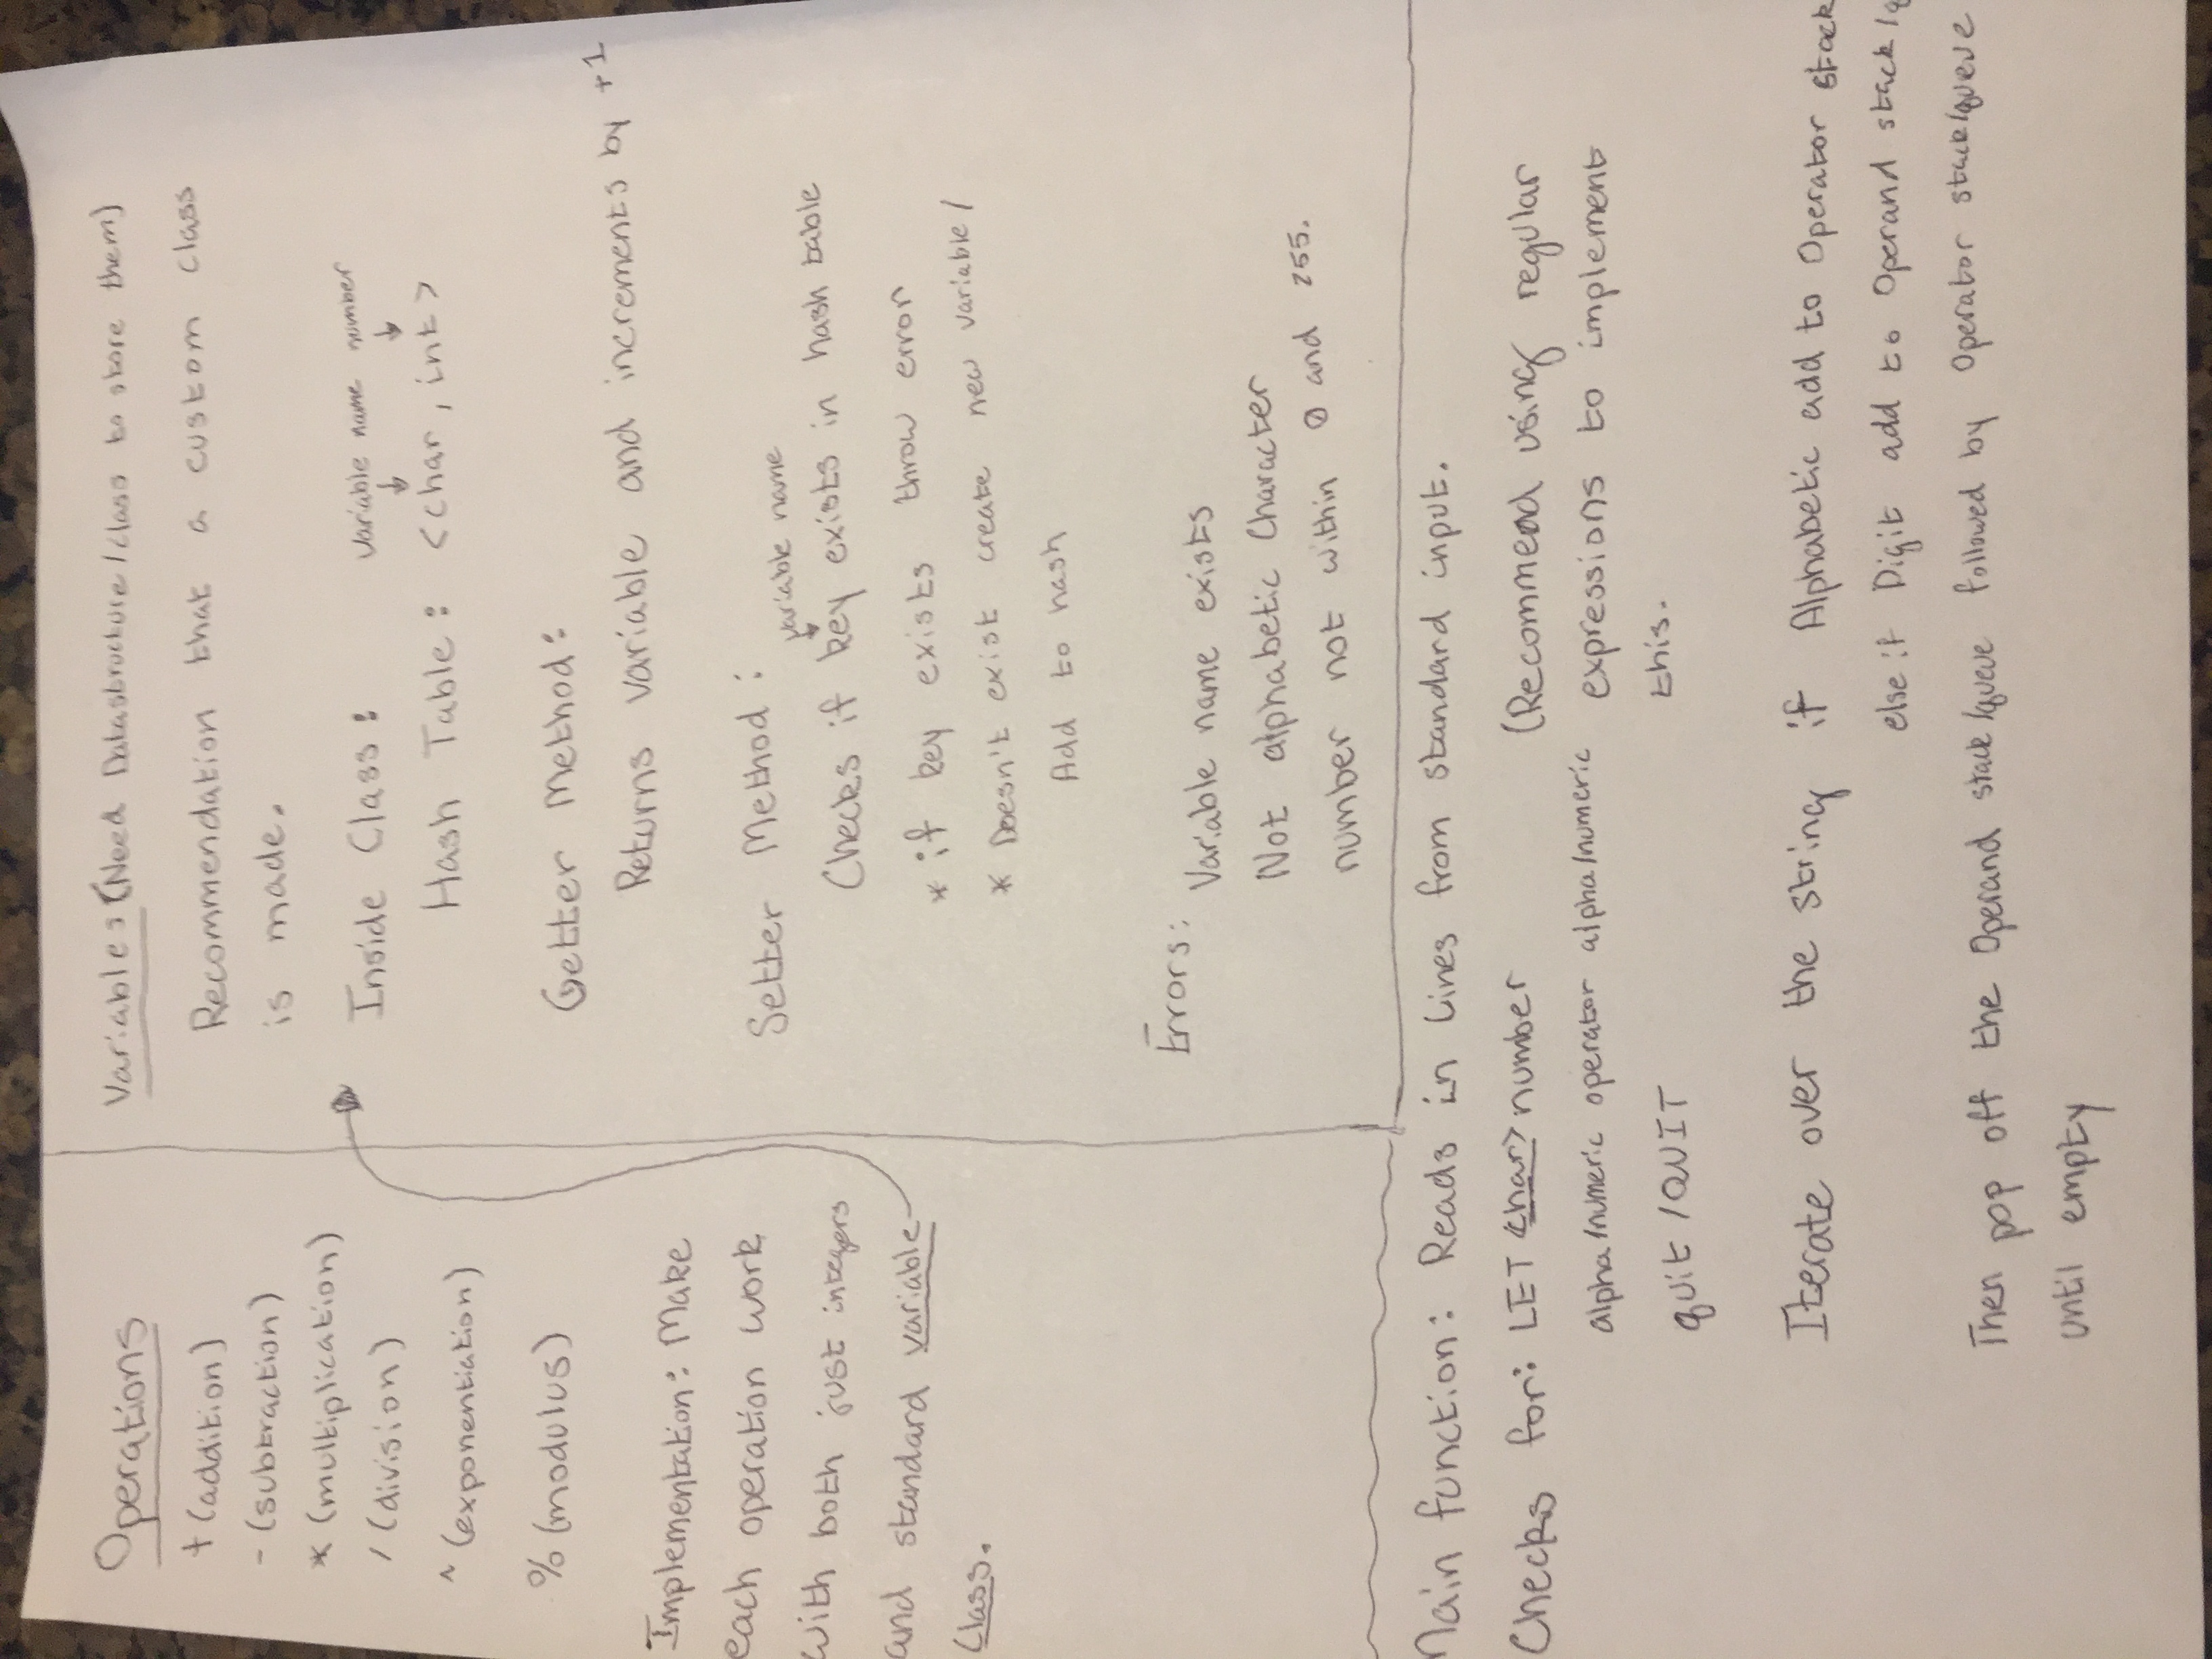 Operations
+ (addition)
- (subtraction)
* (multiplication)
/ (division)
^ (exponentiation)
% (modulus)
Implementation: Make
each operation work
with both just integers
and standard variable
class.
Variables (Need Datastructure/class to store them)
Recommendation that a custom class
is made.
Inside Class:
variable name number
Hash Table: <char, int>
Getter Method:
Returns variable and increments by +1
Setter Method:
variable name
Checks if key exists in hash table
* if key exists throw error
* Doesn't exist create new variable/
Add to hash
Errors:
Variable name exists
Not alphabetic Character
number not within 0 and 255.
Main function: Reads in lines from standard input.
Checks for: LET <char> number
alpha/numeric operator alpha/numeric
quit /QUIT
(Recommend using regular
expressions to implement
this.
Iterate over the string if Alphabetic add to Operator stack
else if Digit add to Operand stack/q
Then pop off the Operand stack/queue followed by Operator stack/queue
until empty